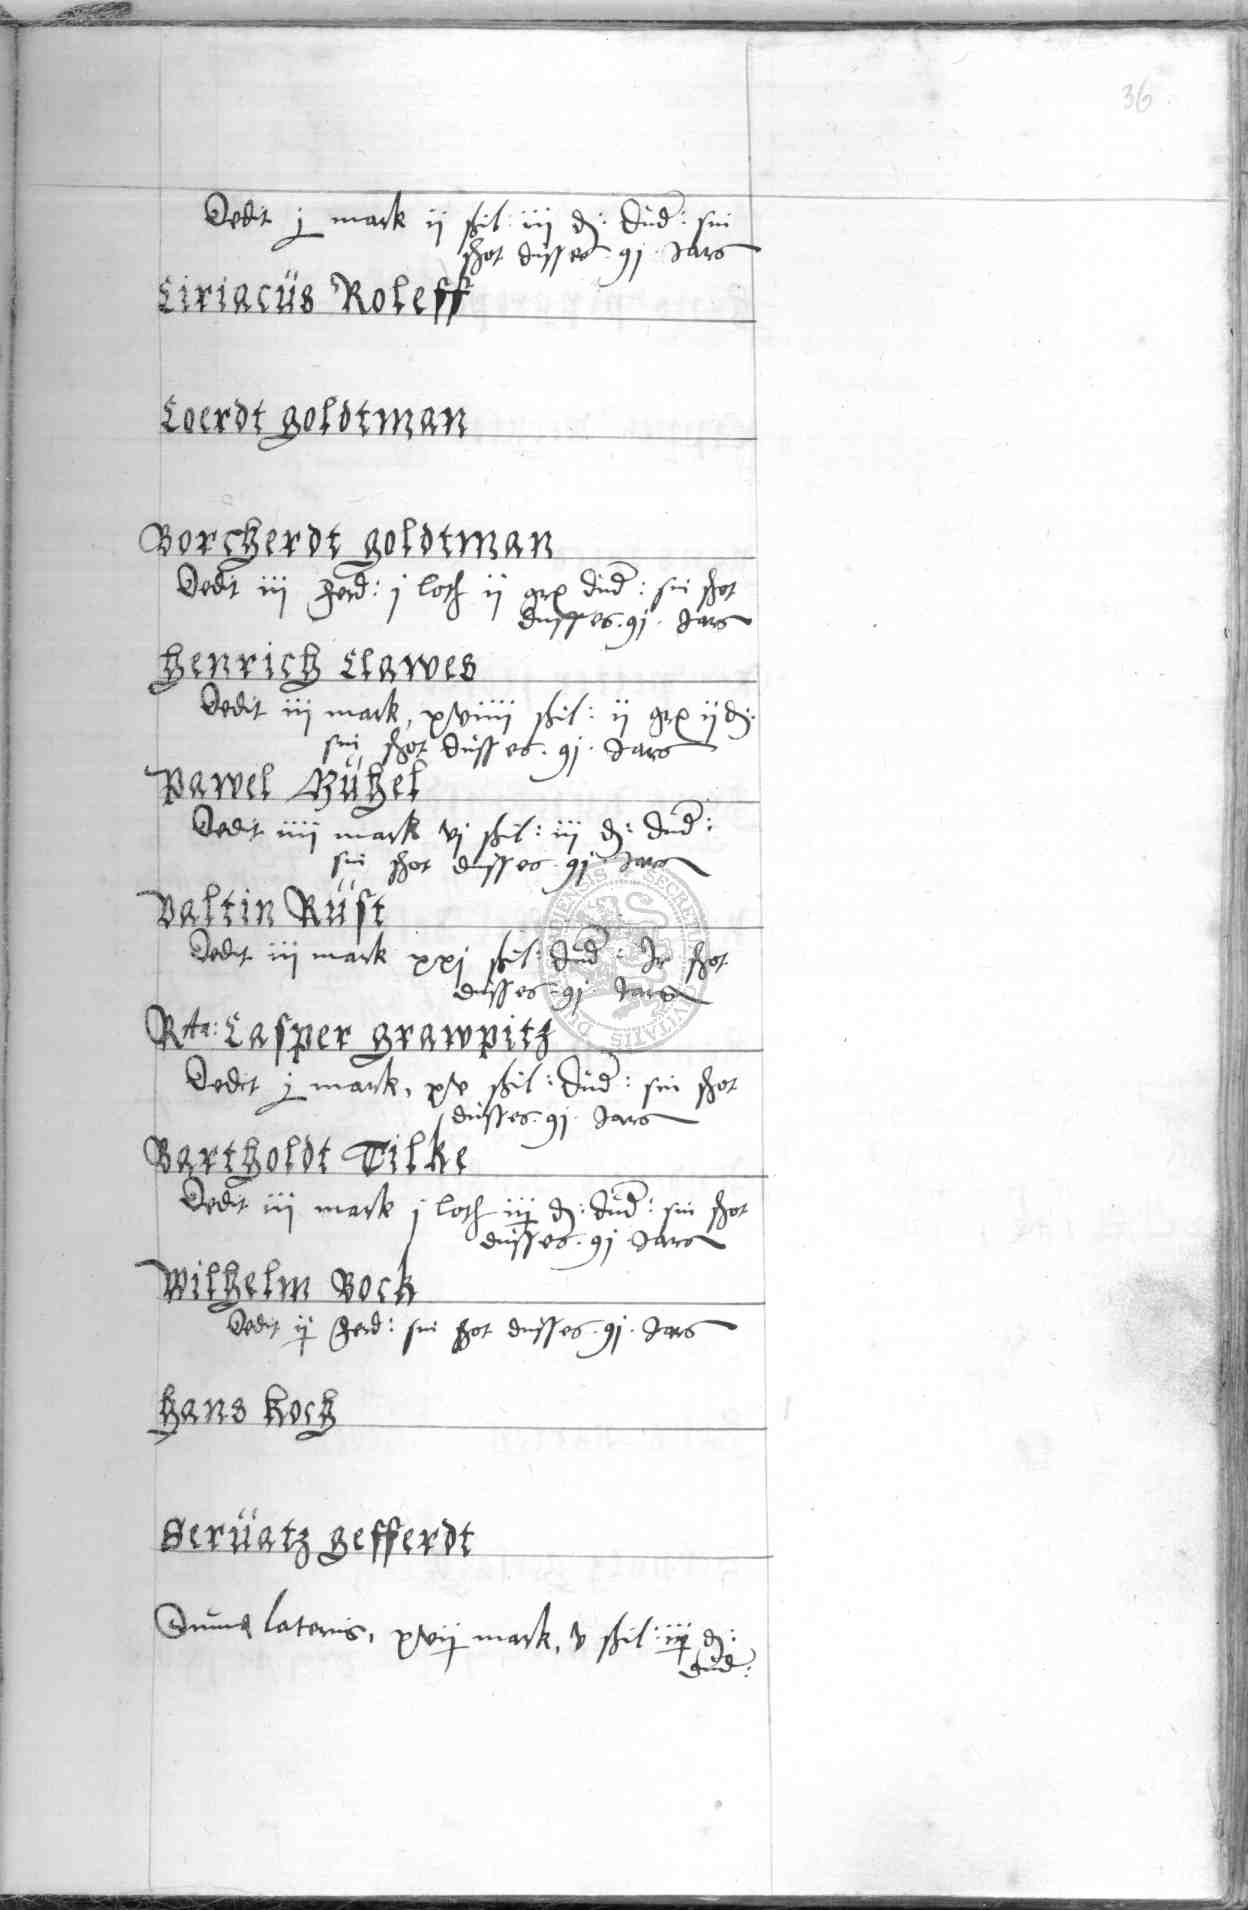 36
Dedit j mark ij schil: iiij d: Dud: sin
schot dusses 91 Jars
Ciriacüs Roleff
Coerdt goldtman
Borcherdt goldtman
Dedit iij ferd: j loth ij grx Dud: sin schot
dusses. 91. Jars
Henrich Clawes
Dedit iij mark, xviiij schil: ij grx ij d:
sin schot dusses. 91. Jars
Pawel Bühel
Dedit iiij mark vj schil: iij d: Dud:
sin schot dusses. 91. Jars
Valtin Rüst
Dedit iij mark xxj schil: Dud: Ir schot
dusses. 91. Jars
Rta: Casper grawpitz
Dedit j mark, xv schil: Dud: sin schot
dusses. 91. Jars
Bartholdt Tilke
Dedit iij mark j loth iij d: Dud: sin schot
dusses. 91. Jars
Wilhelm Bock
Dedit ij ferd: sin schot dusses. 91. Jars
Hans Koch
Serüatz gefferdt
Suma lateris, xvij mark, v schil: iij d:
Dud: